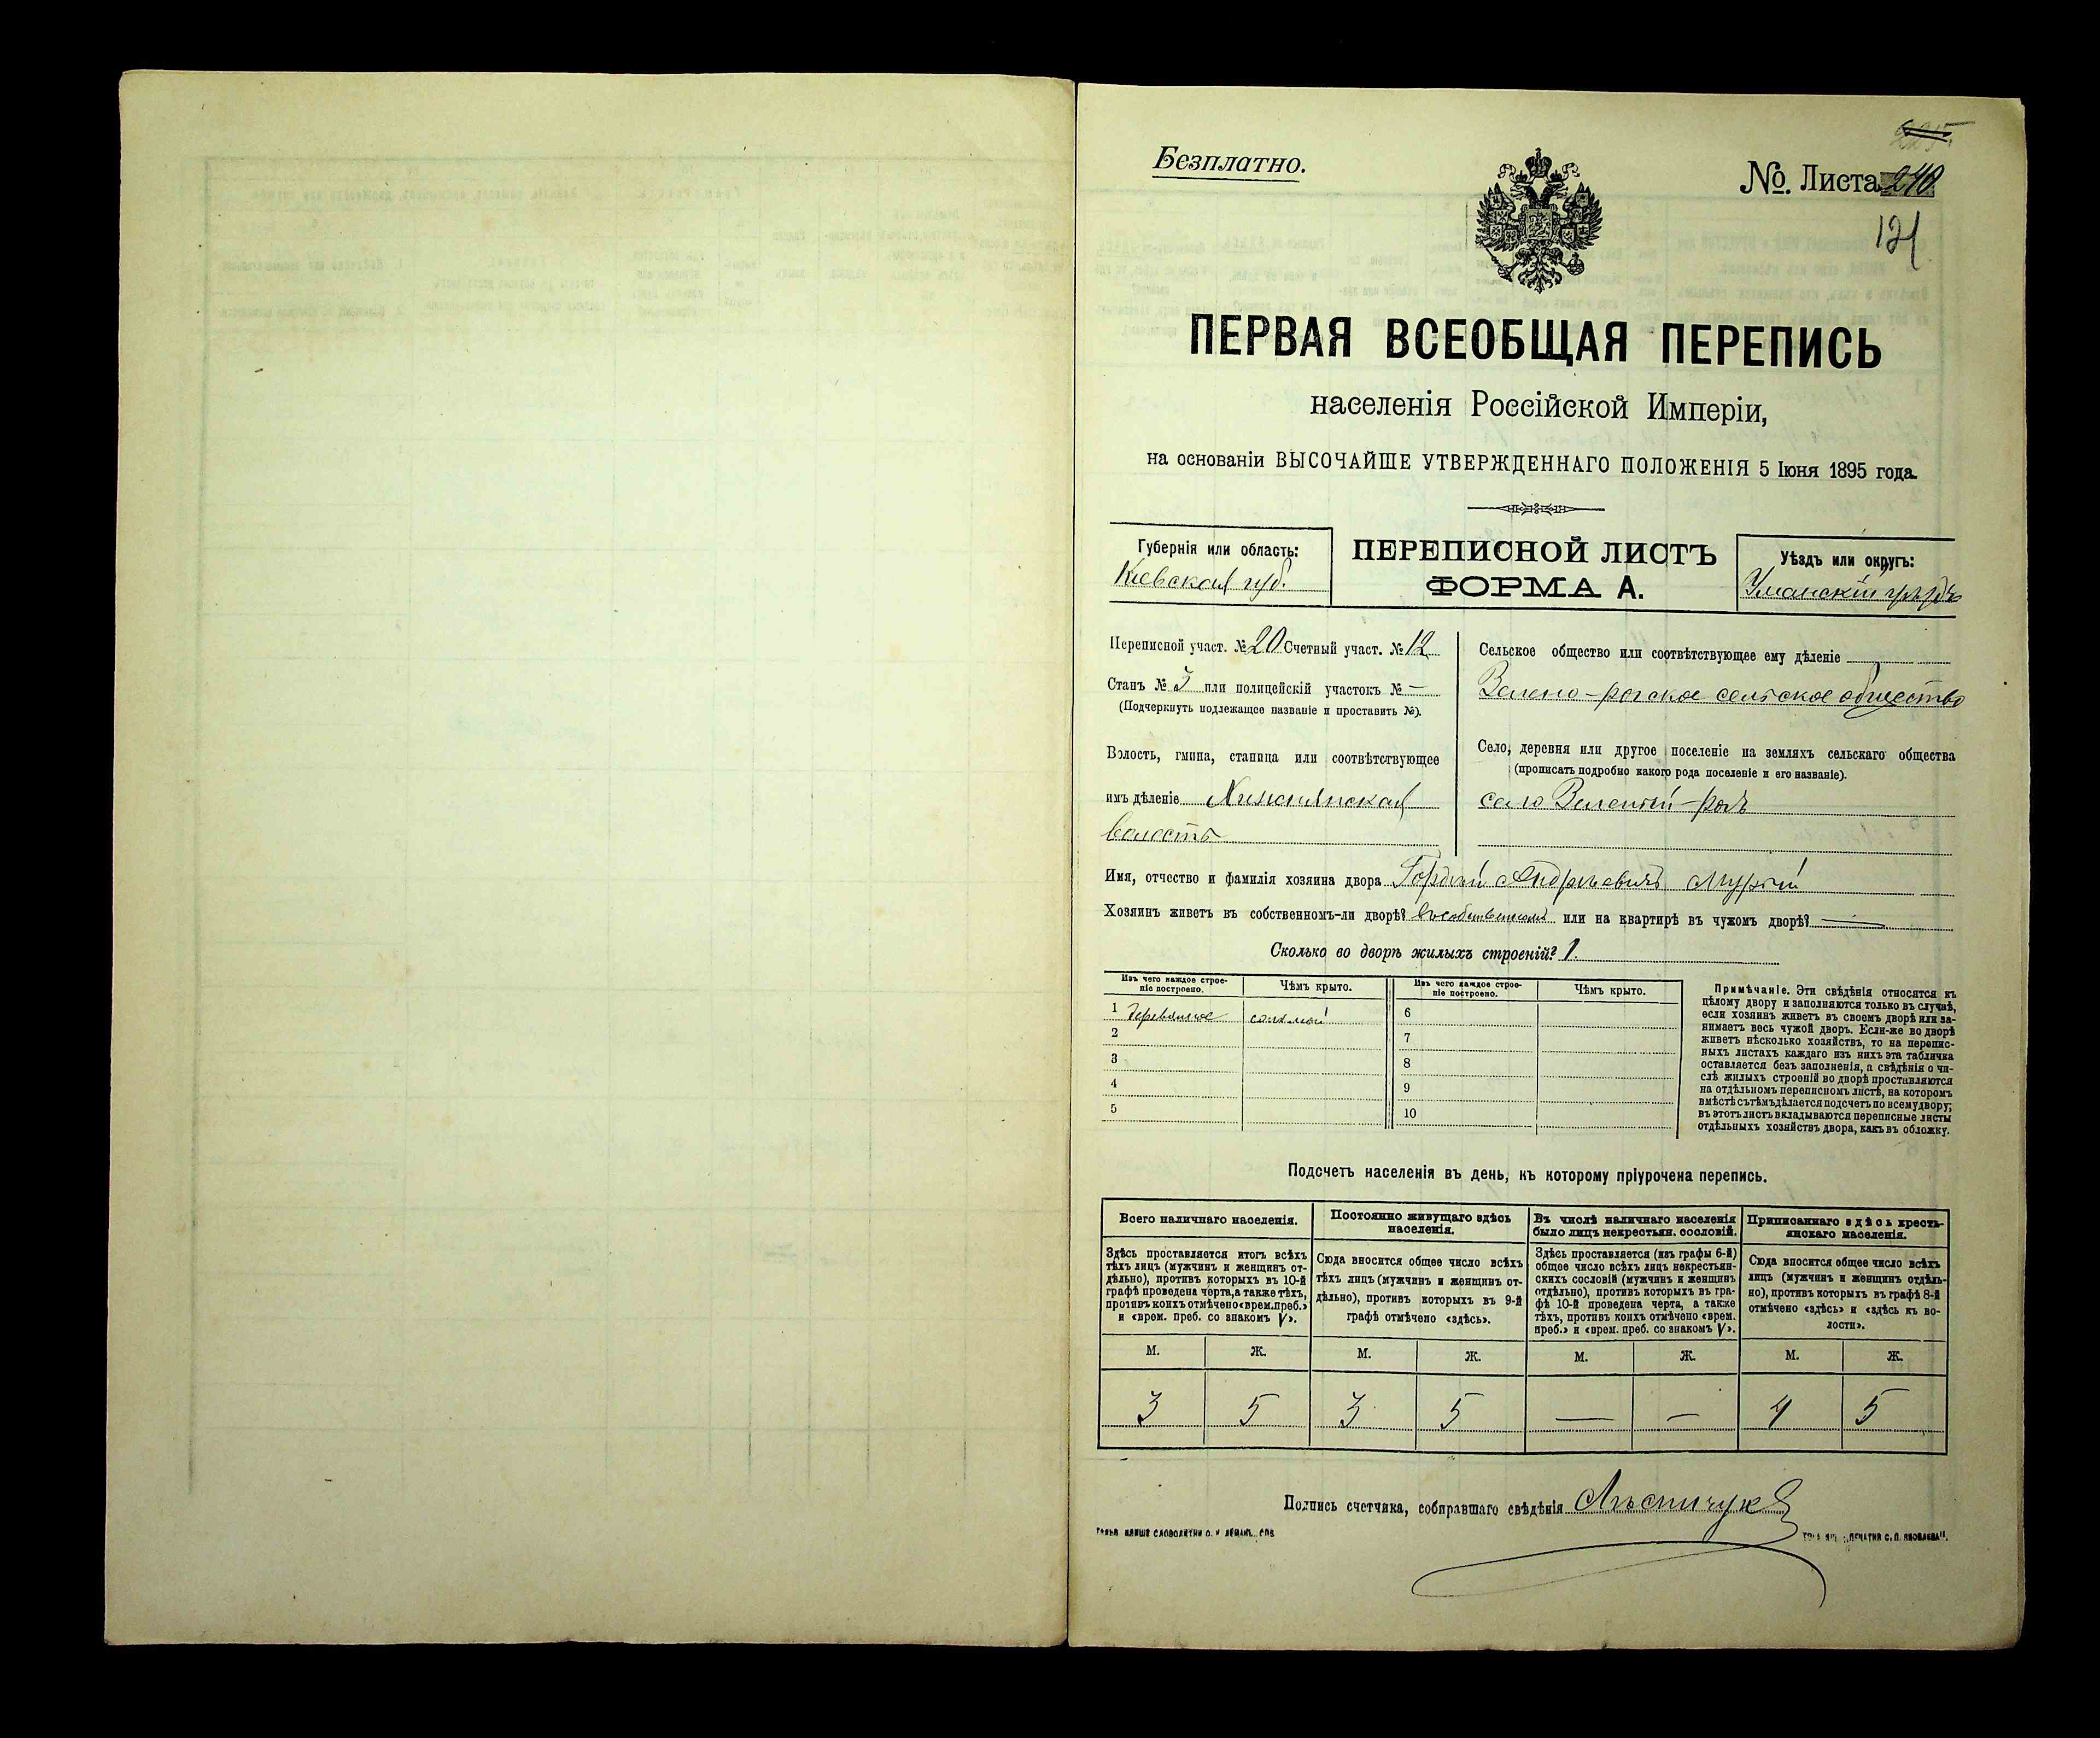 Безплатно.
№ Листа 240
121
ПЕРВАЯ ВСЕОБЩАЯ ПЕРЕПИСЬ
населенія Россійской Имперіи,
на основаніи ВЫСОЧАЙШЕ УТВЕРЖДЕННАГО ПОЛОЖЕНІЯ 5 Іюня 1895 года.
Губернія или область:
Кіевская губ.
ПЕРЕПИСНОЙ ЛИСТЪ
ФОРМА А.
Уѣздъ или округъ:
Уманскій уѣздъ
Переписной участ. № 20 Счетный участ. № 12
Станъ № 5 или полицейскій участокъ № —
(Подчеркнуть подлежащее названіе и проставить №).
Волость, гмина, станица или соотвѣтствующее
имъ дѣленіе
волость
Сельское общество или соотвѣтствующее ему дѣленіе
Зелено-рогское сельское общество
Село, деревня или другое поселеніе на земляхъ сельскаго общества
(прописать подробно какого рода поселеніе и его названіе).
село Зеленый-рогъ
Имя, отчество и фамилія хозяина двора Гордій Андреевичъ
Хозяинъ живетъ въ собственномъ-ли дворѣ? въ собственномъ или на квартирѣ въ чужомъ дворѣ? —
Сколько во дворѣ жилыхъ строеній? 1.
Изъ чего каждое строе-
ніе построено.
Чѣмъ крыто.
Изъ чего каждое строе-
ніе построено.
Чѣмъ крыто.
1 деревянное соломой 6
2 7
3 8
4 9
5 10
Примѣчаніе. Эти свѣдѣнія относятся къ
цѣлому двору и заполняются только въ случаѣ,
если хозяинъ живетъ въ своемъ дворѣ или за-
нимаетъ весь чужой дворъ. Если-же во дворѣ
живетъ нѣсколько хозяйствъ, то на перепис-
ныхъ листахъ каждаго изъ нихъ эта табличка
оставляется безъ заполненія, а свѣдѣнія о чи-
слѣ жилыхъ строеній во дворѣ проставляются
на отдѣльномъ переписномъ листѣ, на которомъ
вмѣстѣ съ тѣмъ дѣлается подсчетъ по всему двору;
въ этотъ листъ вкладываются переписные листы
отдѣльныхъ хозяйствъ двора, какъ въ обложку.
Подсчетъ населенія въ день, къ которому пріурочена перепись.
Всего наличнаго населенія.
Здѣсь проставляется итогъ всѣхъ
тѣхъ лицъ (мужчинъ и женщинъ от-
дѣльно), противъ которыхъ въ 10-й
графѣ проведена черта, а также тѣхъ,
противъ коихъ отмѣчено «врем. преб.»
и «врем. преб. со знакомъ V».
Постоянно живущаго здѣсь
населенія.
Сюда вносится общее число всѣхъ
тѣхъ лицъ (мужчинъ и женщинъ от-
дѣльно), противъ которыхъ въ 9-й
графѣ отмѣчено «здѣсь».
Въ числѣ наличнаго населенія
было лицъ некрестьян. сословій.
Здѣсь проставляется (изъ графы 6-й)
общее число всѣхъ лицъ некрестьян-
скихъ сословій (мужчинъ и женщинъ
отдѣльно), противъ которыхъ въ гра-
фѣ 10-й проведена черта, а также
тѣхъ, противъ коихъ отмѣчено «врем.
преб.» и «врем. преб. со знакомъ V».
Приписаннаго здѣсь кресть-
янскаго населенія.
Сюда вносится общее число всѣхъ
лицъ (мужчинъ и женщинъ отдѣль-
но), противъ которыхъ въ графѣ 8-й
отмѣчено «здѣсь» и «здѣсь къ во-
лости».
М. Ж. М. Ж. М. Ж. М. Ж.
3 5 3 5 — — 4 5
Подпись счетчика, собиравшаго свѣдѣнія